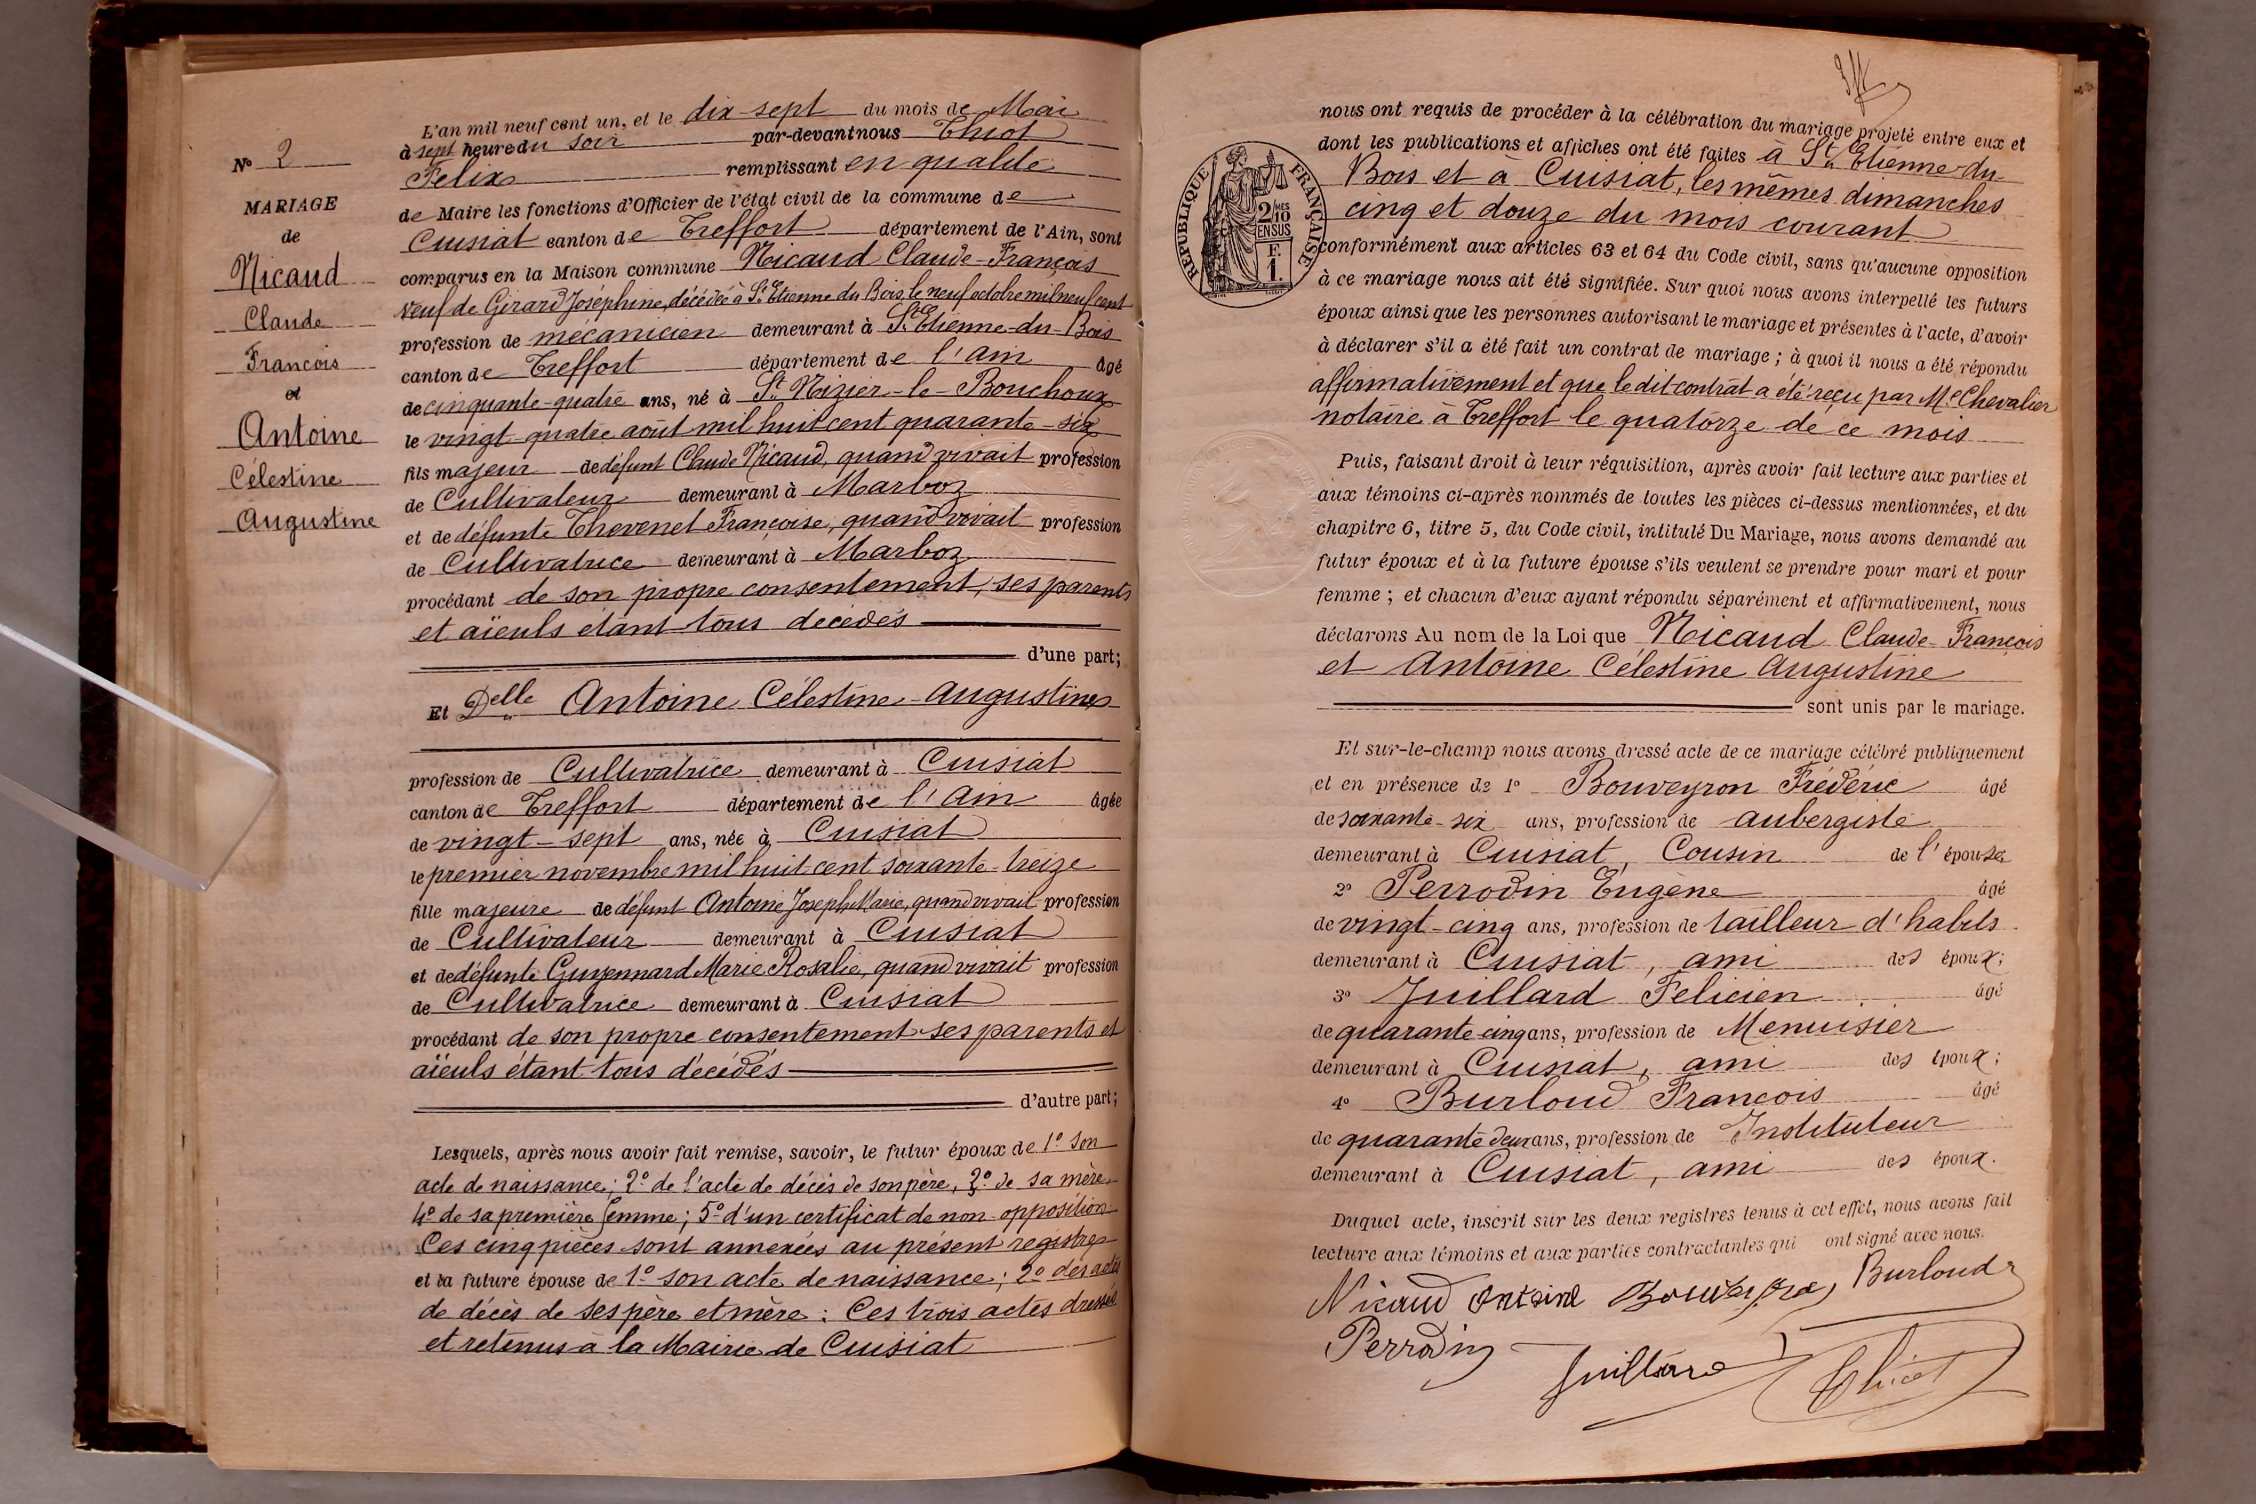 N° 2
MARIAGE
de
Nicaud
Claude
François
et
Antoine
Célestine
Augustine
L'an mil neuf cent un, et le dix sept du mois de Mai
à sept heure du soir par-devant nous Thiot
Félix remplissant en qualité
de Maire les fonctions d'Officier de l'état civil de la commune de
Cuisiat canton de Treffort département de l'Ain, sont
comparus en la Maison commune Nicaud Claude-François
Veuf de Girard Joséphine, décédée à St Etienne du Bois le neuf octobre mil neuf cent
profession de mécanicien demeurant à St Etienne-du-Bois
canton de Treffort département de l'Ain âgé
de cinquante-quatre ans, né à St Nizier-le-Bouchoux
le vingt-quatre août mil huit cent quarante-six
fils majeur de défunt Claude Nicaud, quand vivait profession
de Cultivateur demeurant à Marboz
et de défunte Thevenet Françoise, quand vivait profession
de Cultivatrice demeurant à Marboz
procédant de son propre consentement, ses parents
et aïeuls étant tous décédés
d'une part;
Et Delle Antoine Célestine Augustine
profession de Cultivatrice demeurant à Cuisiat
canton de Treffort département de l'Ain âgée
de vingt-sept ans, née à Cuisiat
le premier novembre mil huit cent soixante-treize
fille majeure de défunt Antoine Joseph Marie, quand vivait profession
de Cultivateur demeurant à Cuisiat
et de défunte Guyennard Marie Rosalie, quand vivait profession
de Cultivatrice demeurant à Cuisiat
procédant de son propre consentement ses parents et
aïeuls étant tous décédés
d'autre part;
Lesquels, après nous avoir fait remise, savoir, le futur époux de 1° son
acte de naissance; 2° de l'acte de décès de son père, 3° de sa mère
4° de sa première femme; 5° d'un certificat de non opposition
Ces cinq pièces sont annexées au présent registre
et la future épouse de 1° son acte de naissance; 2° des actes
de décès de ses père et mère : Ces trois actes dressés
et retenus à la Mairie de Cuisiat
nous ont requis de procéder à la célébration du mariage projeté entre eux et
dont les publications et affiches ont été faites à St Etienne-du-
Bois et à Cuisiat, les mêmes dimanches
cinq et douze du mois courant
RÉPUBLIQUE FRANÇAISE
2/10 MES
EN SUS
F.
1.
conformément aux articles 63 et 64 du Code civil, sans qu'aucune opposition
à ce mariage nous ait été signifiée. Sur quoi nous avons interpellé les futurs
époux ainsi que les personnes autorisant le mariage et présentes à l'acte, d'avoir
à déclarer s'il a été fait un contrat de mariage; à quoi il nous a été répondu
affirmativement et que le dit contrat a été reçu par Me Chevalier
notaire à Treffort le quatorze de ce mois
Puis, faisant droit à leur réquisition, après avoir fait lecture aux parties et
aux témoins ci-après nommés de toutes les pièces ci-dessus mentionnées, et du
chapitre 6, titre 5, du Code civil, intitulé Du Mariage, nous avons demandé au
futur époux et à la future épouse s'ils veulent se prendre pour mari et pour
femme; et chacun d'eux ayant répondu séparément et affirmativement, nous
déclarons Au nom de la Loi que Nicaud Claude-François
et Antoine Célestine Augustine
sont unis par le mariage.
Et sur-le-champ nous avons dressé acte de ce mariage célébré publiquement
et en présence de 1° Bouveyron Frédéric âgé
de soixante-six ans, profession de aubergiste
demeurant à Cuisiat, Cousin de l'épouse
2° Perrodin Eugène âgé
de vingt-cinq ans, profession de tailleur d'habits
demeurant à Cuisiat, ami des époux;
3° Juillard Felicien âgé
de quarante-cinq ans, profession de Menuisier
demeurant à Cuisiat, ami des époux;
4° Burloud François âgé
de quarante deux ans, profession de Instituteur
demeurant à Cuisiat, ami des époux.
Duquel acte, inscrit sur les deux registres tenus à cet effet, nous avons fait
lecture aux témoins et aux parties contractantes qui ont signé avec nous.
Nicaud Antoine Burloud
Perrodin Juillard Thiot